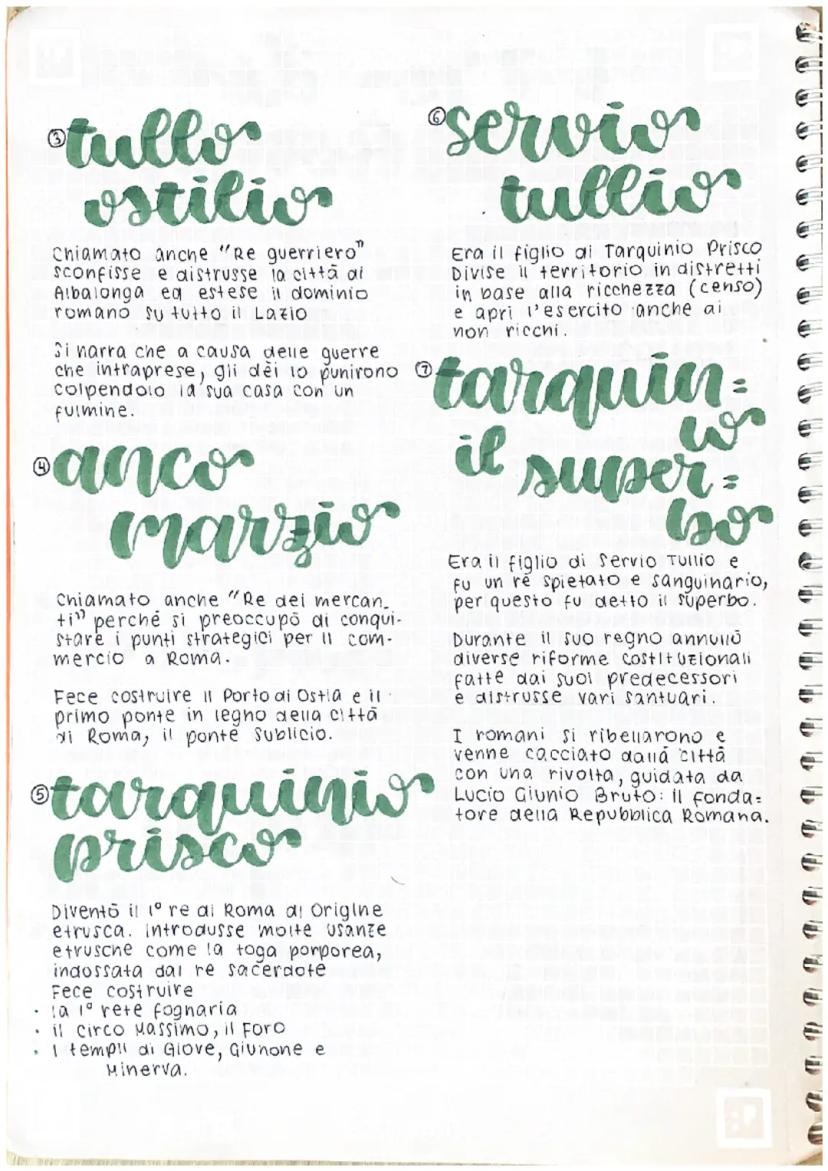 ③ tullo
ostilio
Chiamato anche "Re guerriero"
sconfisse e distrusse la città di
Albalonga ed estese il dominio
romano su tutto il Lazio
Si narra che a causa delle guerre
che intraprese, gli dèi lo punirono
colpendolo la sua casa con un
fulmine.
④ anco
marzio
Chiamato anche "Re dei mercan-
ti" perché si preoccupò di conqui-
stare i punti strategici per il com-
mercio a Roma.
Fece costruire il Porto di Ostia e il
primo ponte in legno della città
di Roma, il ponte Sublicio.
⑤ tarquinio
prisco
Diventò il 1° re di Roma di Origine
etrusca. Introdusse molte usanze
etrusche come la toga porporea,
indossata dal re sacerdote
Fece costruire
· la 1° rete fognaria
· il Circo Massimo, il Foro
· I templi di Giove, Giunone e
Minerva.
⑥ servio
tullio
Era il figlio di Tarquinio Prisco
Divise il territorio in distretti
in base alla ricchezza (censo)
e aprì l'esercito anche ai
non ricchi.
⑦ tarquin=
io
il super=
bo
Era il figlio di Servio Tullio e
fu un re spietato e sanguinario,
per questo fu detto il superbo.
Durante il suo regno annullò
diverse riforme costituzionali
fatte dai suoi predecessori
e distrusse vari santuari.
I romani si ribellarono e
venne cacciato dalla città
con una rivolta, guidata da
Lucio Giunio Bruto: il fonda=
tore della Repubblica Romana.